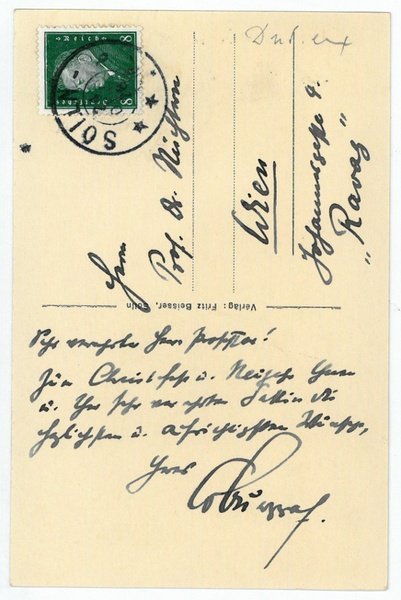 8 8
Deutsches Reich
SÖLN
Herrn
Prof. Dr.
Wien
Johannesgasse 4.
"Ravag"
Verlag: Fritz Beisser, Cöln
Sehr verehrter Herr Professor!
Zum Christfest u. Neujahr Ihnen
u. Ihrer sehr verehrten Gattin die
herzlichsten u. aufrichtigsten Wünsche,
Ihres